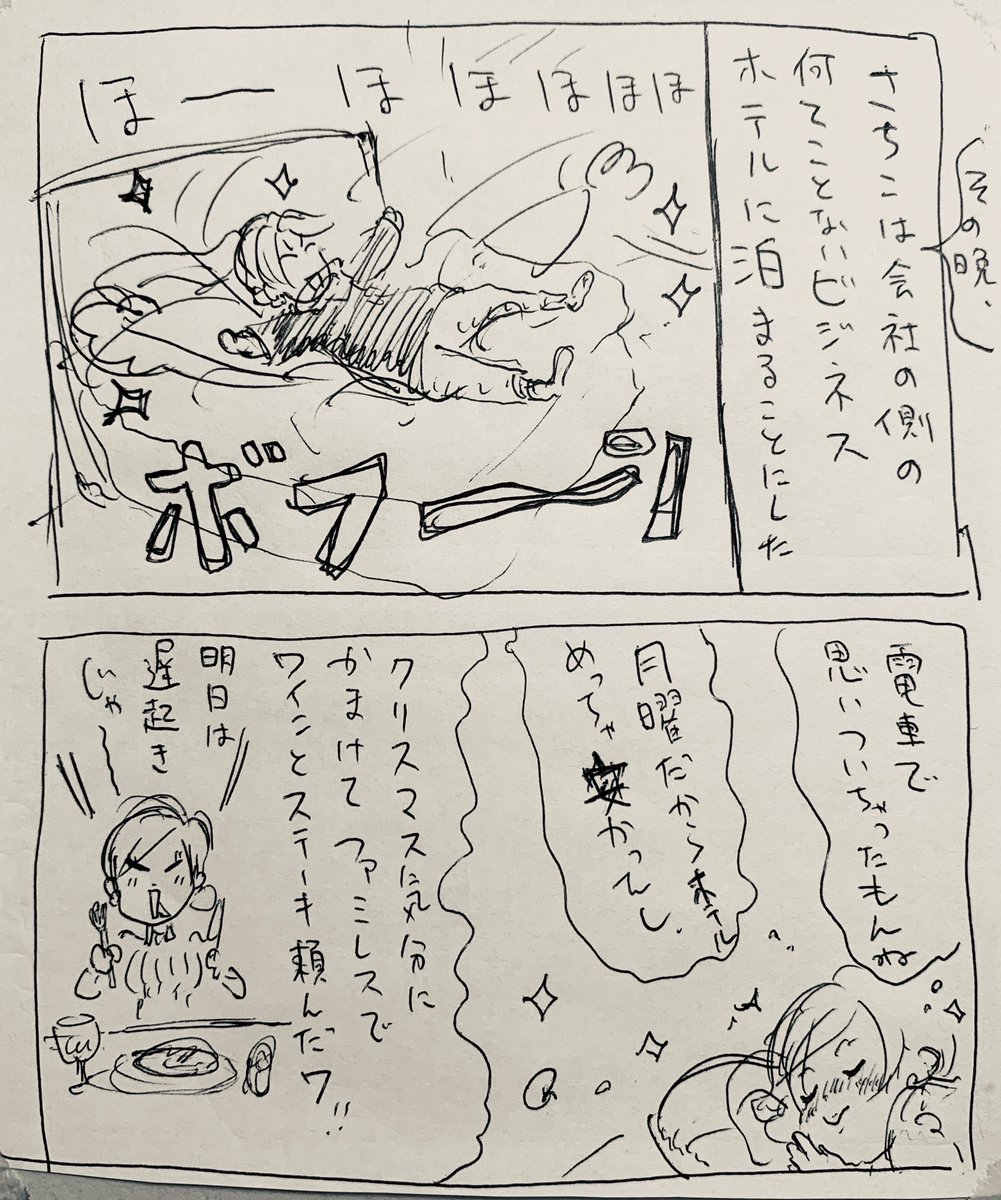 その晩、
さちこは会社の側の
何てことないビジネス
ホテルに泊まることにした
ほーほほほほほ
ボフーン
電車で
思いついちゃったもんね
月曜だからホテル
めっちゃ安かってん、
クリスマス気分に
かまけてファミレスで
ワインとステーキ頼んだワ!!
明日は
遅起き
じゃー